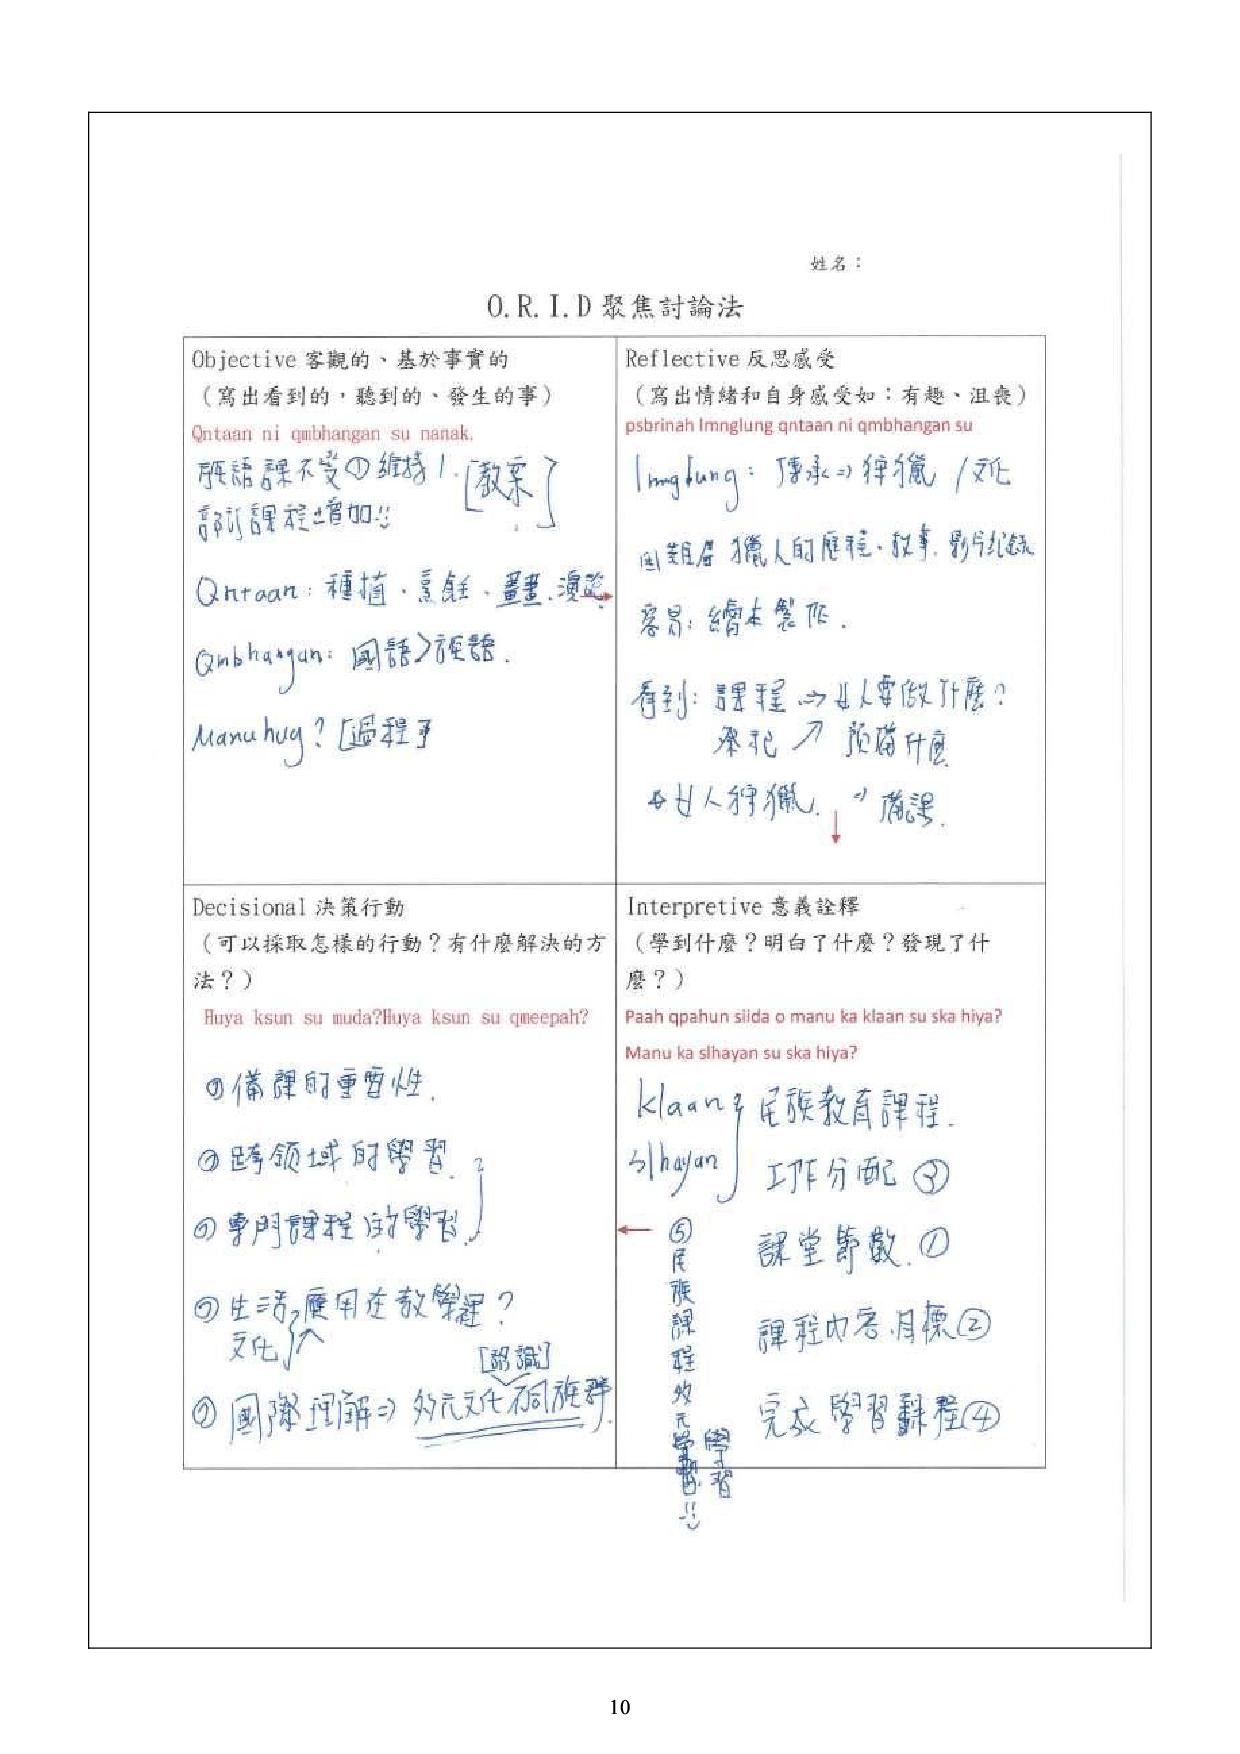 姓名：
O.R.I.D 聚焦討論法
Objective 客觀的、基於事實的
（寫出看到的，聽到的、發生的事）
Qntaan ni qmbhangan su nanak.
族語課不變①維持1. [教案]
部訂課程增加!!
Qntaan: 種植、烹飪、畫畫.
Qmbhangan: 國語>族語.
Manu hug? [過程]
Reflective 反思感受
（寫出情緒和自身感受如：有趣、沮喪）
psbrinah lmnglung qntaan ni qmbhangan su
lmglung: 傳承⇒狩獵 /文化
困難: 獵人的歷程、故事. 影片紀錄
容易: 繪本製作.
看到: 課程 ⇒ 女人要做什麼?
祭祀 ↗ 預備什麼
女人狩獵. ⇒ 備課.
Decisional 決策行動
（可以採取怎樣的行動？有什麼解決的方
法？）
Huya ksun su muda?Huya ksun su qmeepah?
備課的重要性.
跨領域的學習.
專門課程的學習.
生活,應用在教學裡?
文化
[認識]
國際理解⇒多元文化不同族群.
Interpretive 意義詮釋
（學到什麼？明白了什麼？發現了什
麼？）
Paah qpahun siida o manu ka klaan su ska hiya?
Manu ka slhayan su ska hiya?
klaan 民族教育課程.
slhayan 工作分配 ③
課堂節數. ①
課程內容.目標②
完成學習課程④
⑤民族課程效元學習!!
10